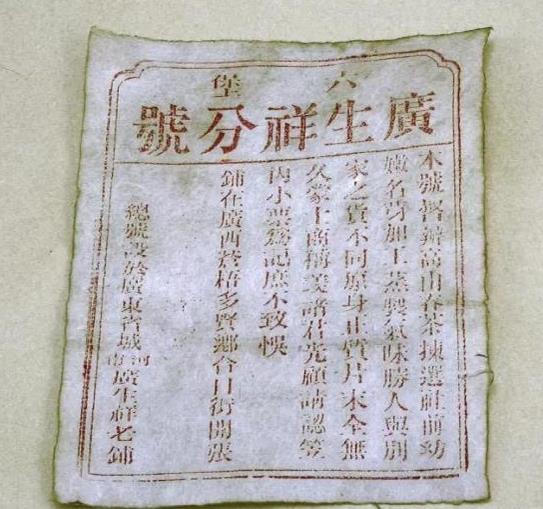 六堡
廣生祥分號
本號督辦高山春茶揀選社前幼
嫩名芽加工蒸製氣味勝人與別
家之貨不同原身正質片末全無
久蒙士商稱美諸君光顧請認笠
內小票爲記庶不致悞
舖在廣西蒼梧多賢鄉合口街開張
總號設於廣東省城河南廣生祥老舖